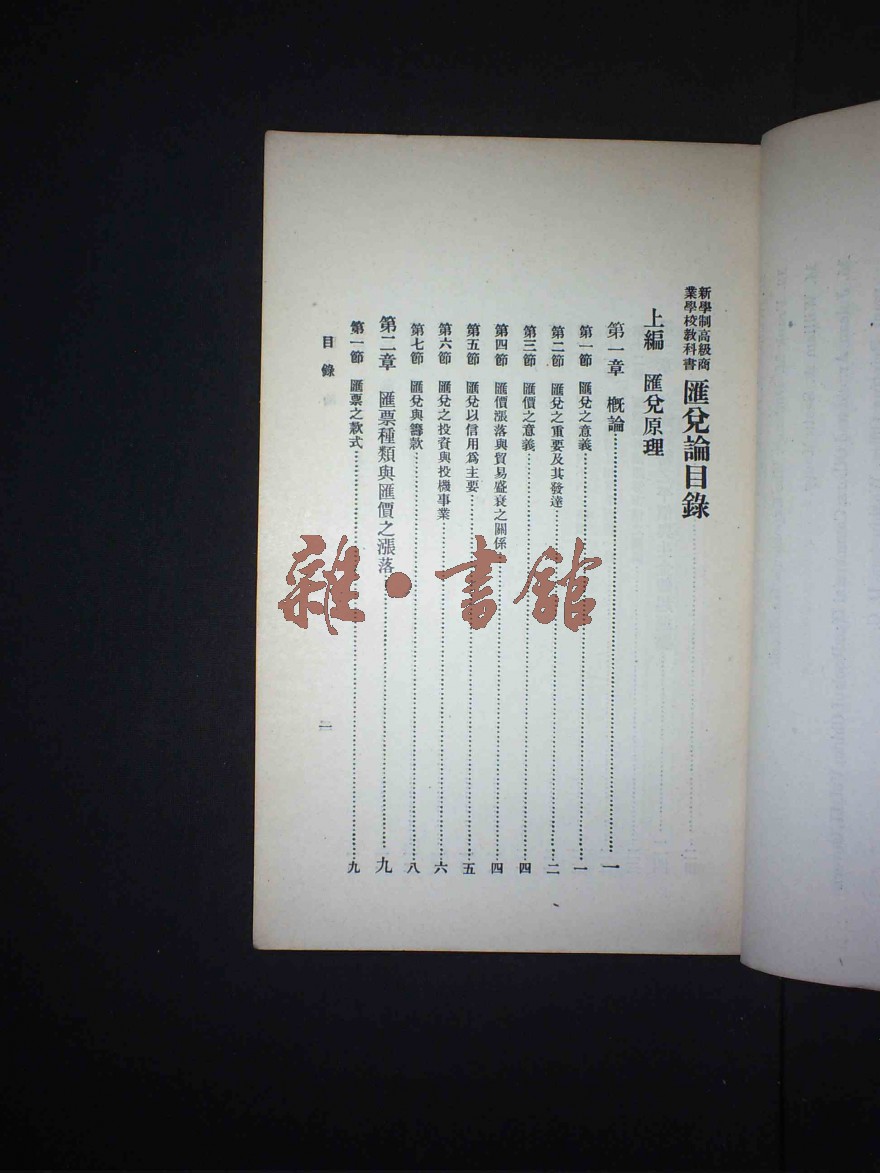 新學制高級商
業學校教科書
匯兌論目錄
上編 匯兌原理
第一章 概論……一
第一節 匯兌之意義……一
第二節 匯兌之重要及其發達……二
第三節 匯價之意義……四
第四節 匯價漲落與貿易盛衰之關係……四
第五節 匯兌以信用爲主要……五
第六節 匯兌之投資與投機事業……六
第七節 匯兌與籌款……八
第二章 匯票種類與匯價之漲落……九
第一節 匯票之款式……九
目錄
一
雜·書館